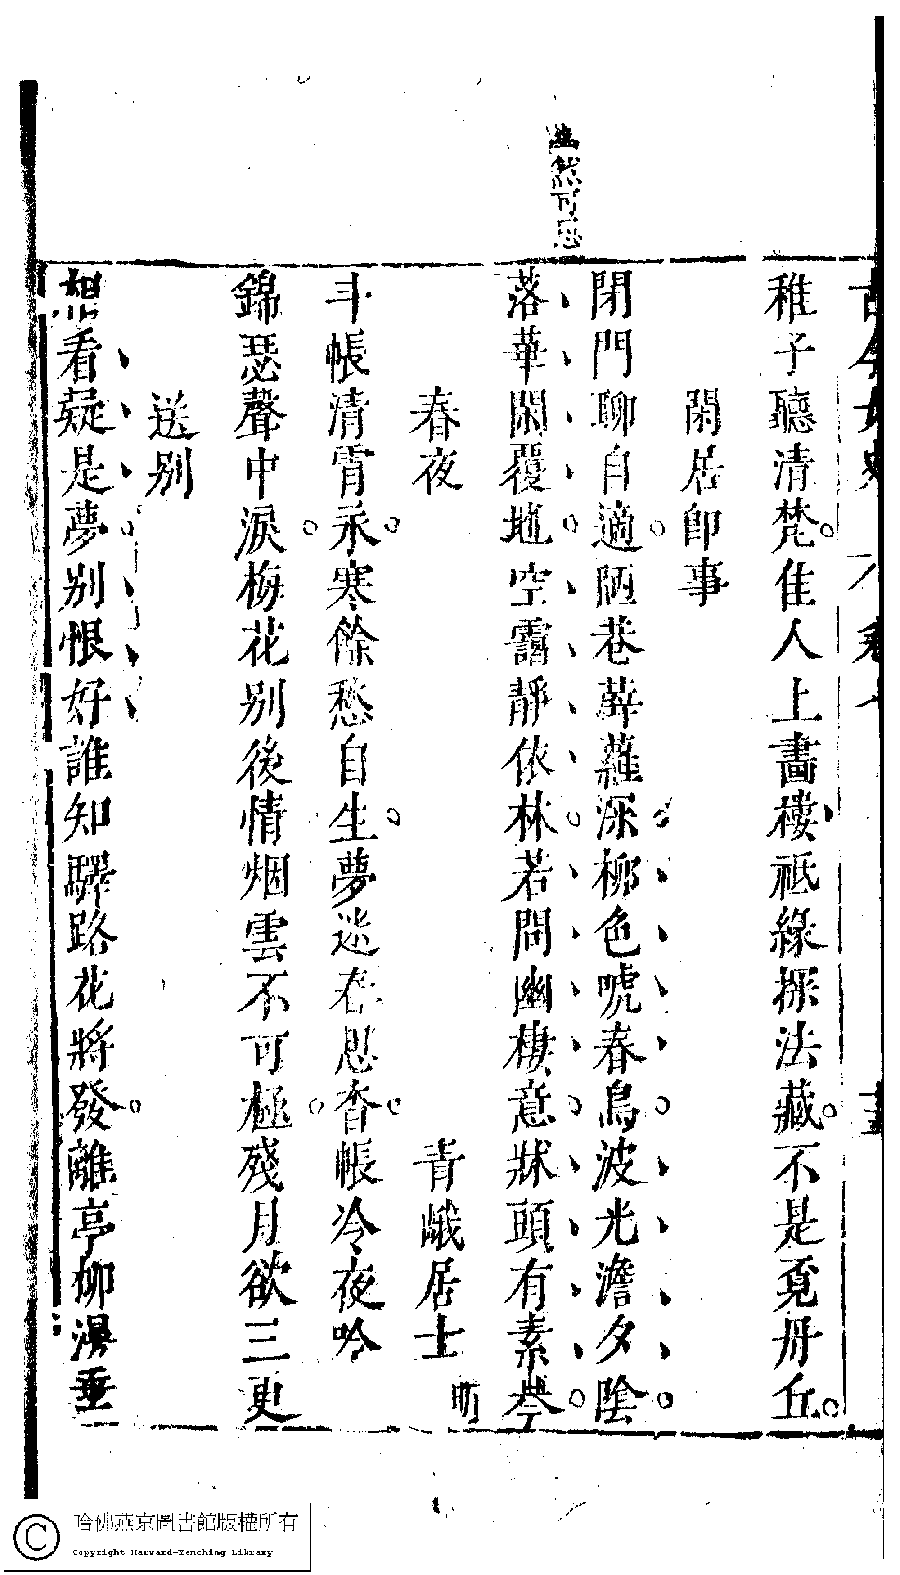 古今女史 卷
稚子聽清梵。佳人上畫樓祗緣探法藏。不是覓丹丘。
閑居即事
閉門聊自適。陋巷薜蘿深。柳色唬春鳥。波光澹夕陰。
落華閑覆地。空靄靜依林。若問幽棲意。牀頭有素琴。
然可思
春夜 青峨居士 明
斗帳清霄永。寒餘愁自生。夢迷春思杳。帳冷夜吟
錦瑟聲中淚。梅花別後情烟雲不可極。殘月欲三更
送別
想看疑是夢。別恨好誰知驛路花將發。離亭柳漫垂
哈佛燕京圖書館版權所有
Copyright Harvard-Yenching Library